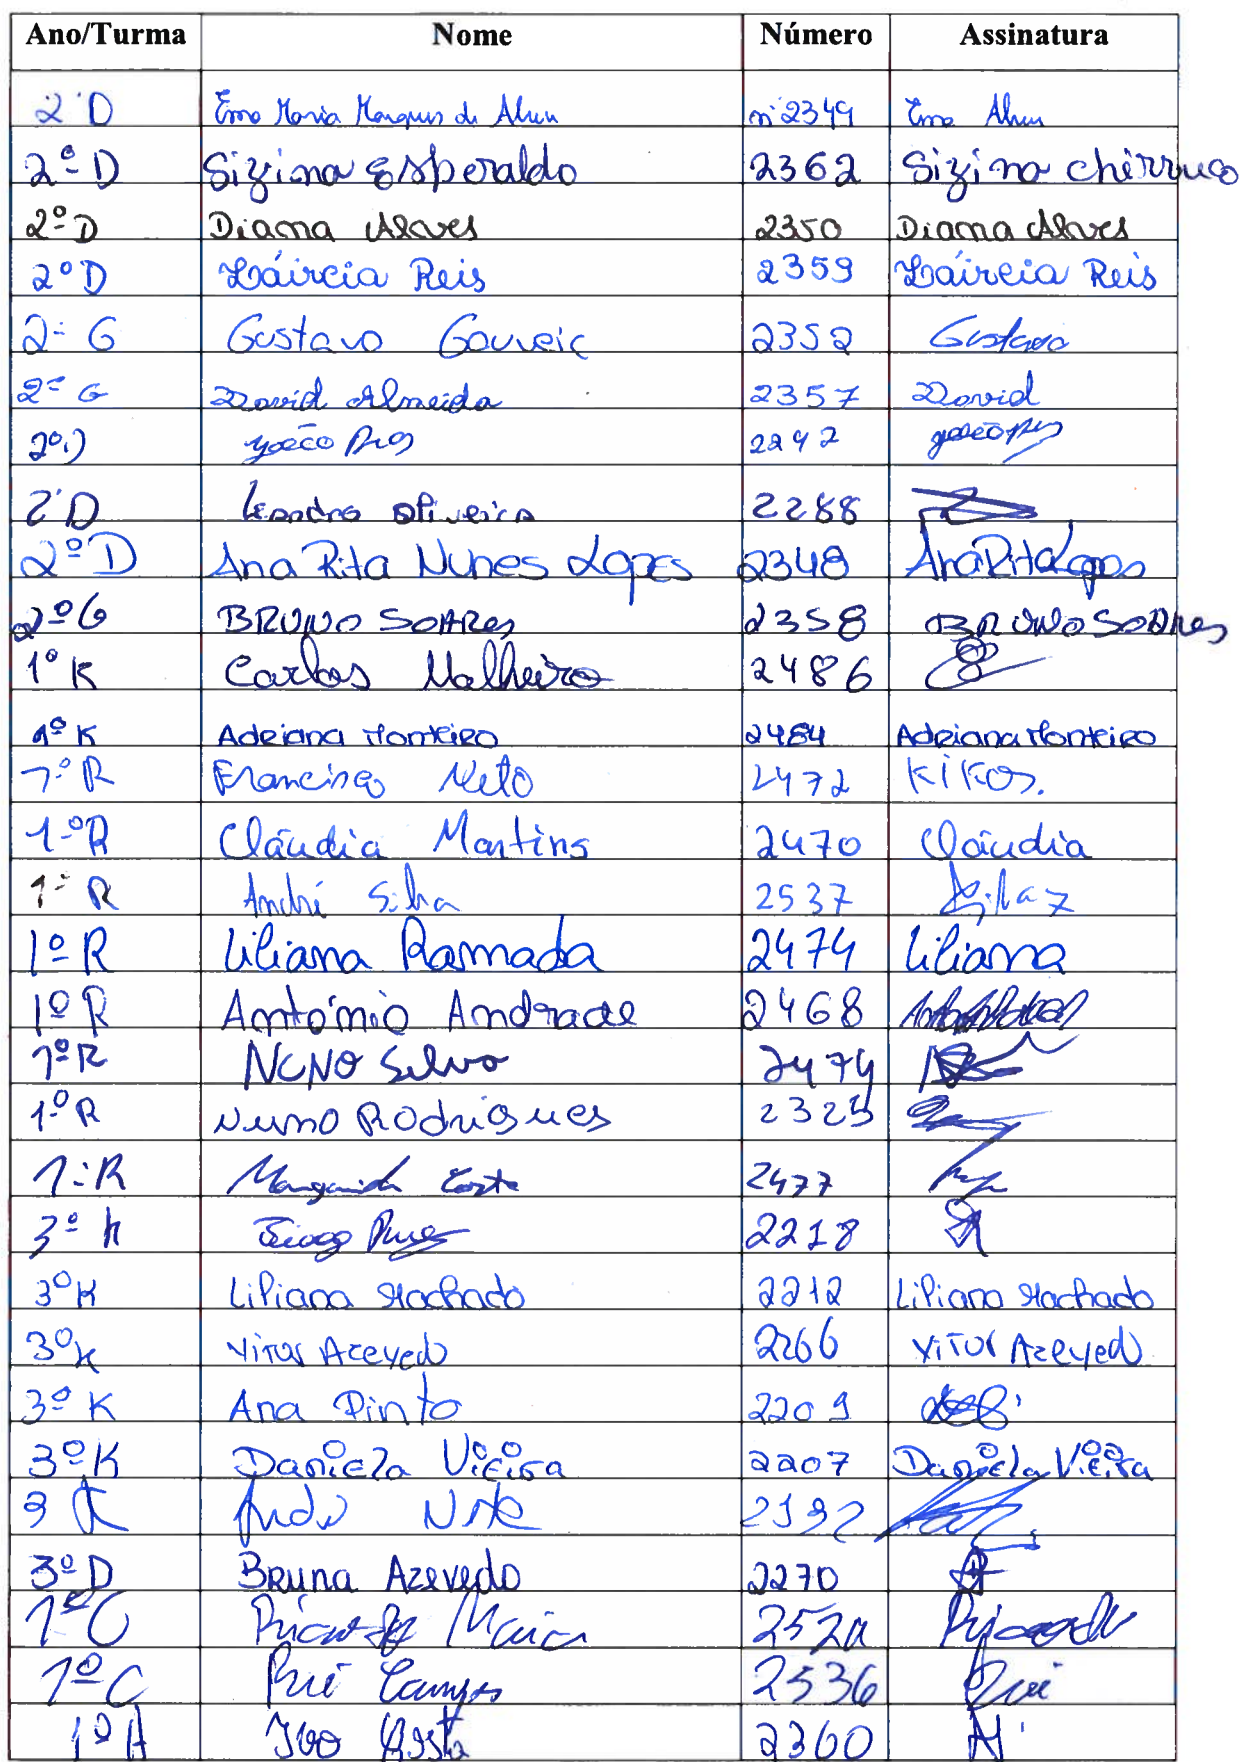 Ano/Turma Nome Número Assinatura
2ºD Maria nº2349
2ºD Sizina Esperaldo 2362 Sizina Chirruco
2ºD Diana Alves 2350 Diana Alves
2ºD Láircia Reis 2359 Láircia Reis
2º G Gustavo Gouveia 2352 Gustavo
2º G David Almeida 2357 David
2ºD 2292
2ºD Leandro Oliveira 2288
2ºD Ana Rita Nunes Lopes 2348 Ana Rita Lopes
2ºG BRUNO SOARES 2358 BRUNO SOARES
1º K Carlos Malheiro 2486
1º K Adriana Monteiro 2484 Adriana Monteiro
1º R Francisco Neto 2472 KIKOS.
1ºR Cláudia Martins 2470 Cláudia
1º R André Silva 2537
1º R Liliana Ramada 2474 Liliana
1º R António Andrade 2468
1º R NUNO Silva 2479
1º R Nuno Rodrigues 2325
1º R Margarida Costa 2477
3º K 2218
3ºK Liliana Machado 2212 Liliana Machado
3ºK Vitor Azevedo 2266 Vitor Azevedo
3º K Ana Pinto 2209
3ºK Daniela Vieira 2207 Daniela Vieira
3 K 2192
3º D Bruna Azevedo 2270
1º C Ricardo Maia Ricardo
1º C Rui Campos 2536 Rui
1º A Ivo Costa 2360